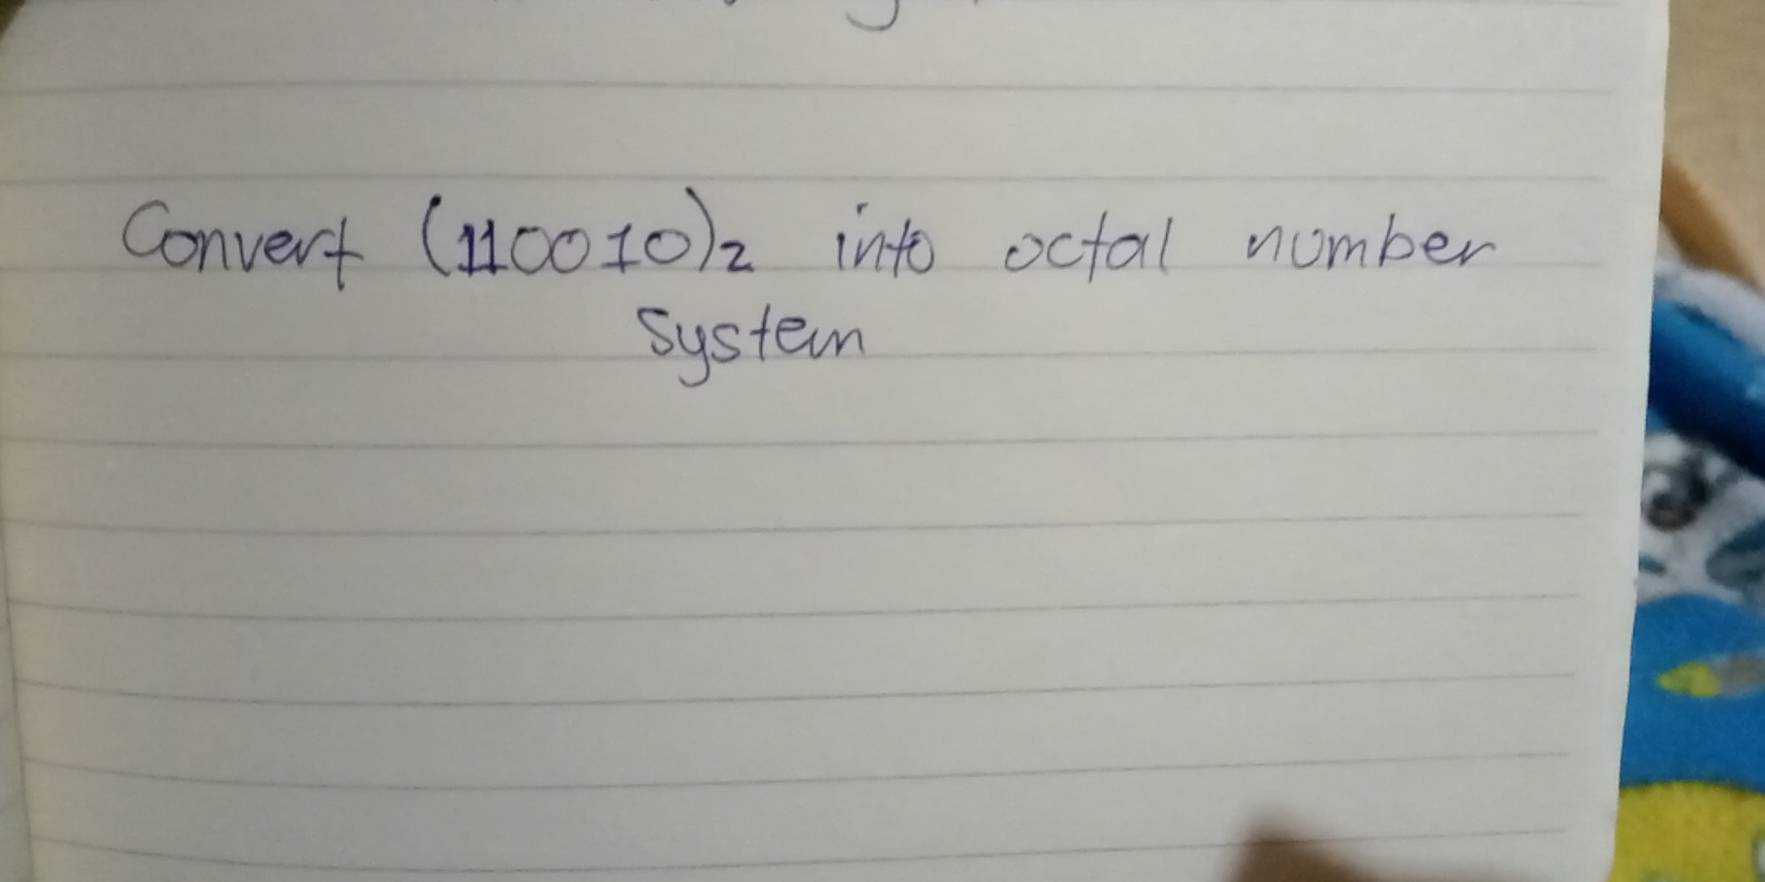 Convert (110010)2 into octal number
system